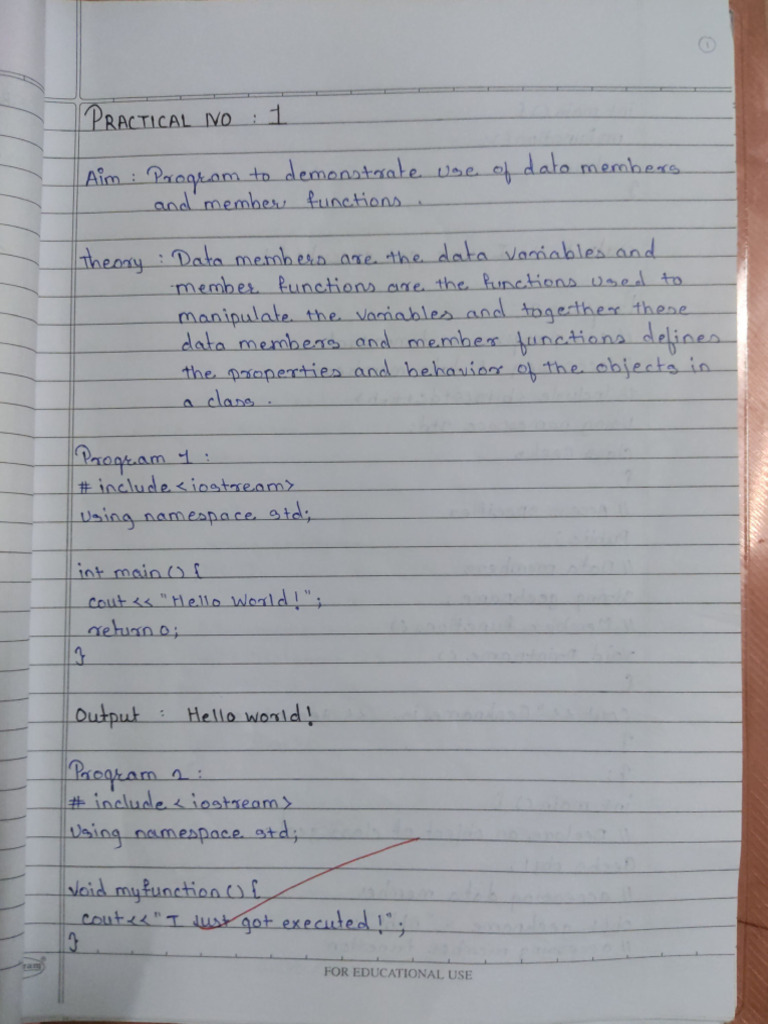 1
PRACTICAL NO : 1
Aim : Program to demonstrate use of data members
and member functions.
Theory : Data members are the data variables and
member functions are the functions used to
manipulate the variables and together these
data members and member functions defines
the properties and behavior of the objects in
a class.
Program 1 :
# include <iostream>
using namespace std;
int main () {
cout << "Hello World!";
return 0;
}
Output : Hello world!
Program 2 :
# include <iostream>
using namespace std;
void myfunction () {
cout << "I Just got executed!";
}
FOR EDUCATIONAL USE